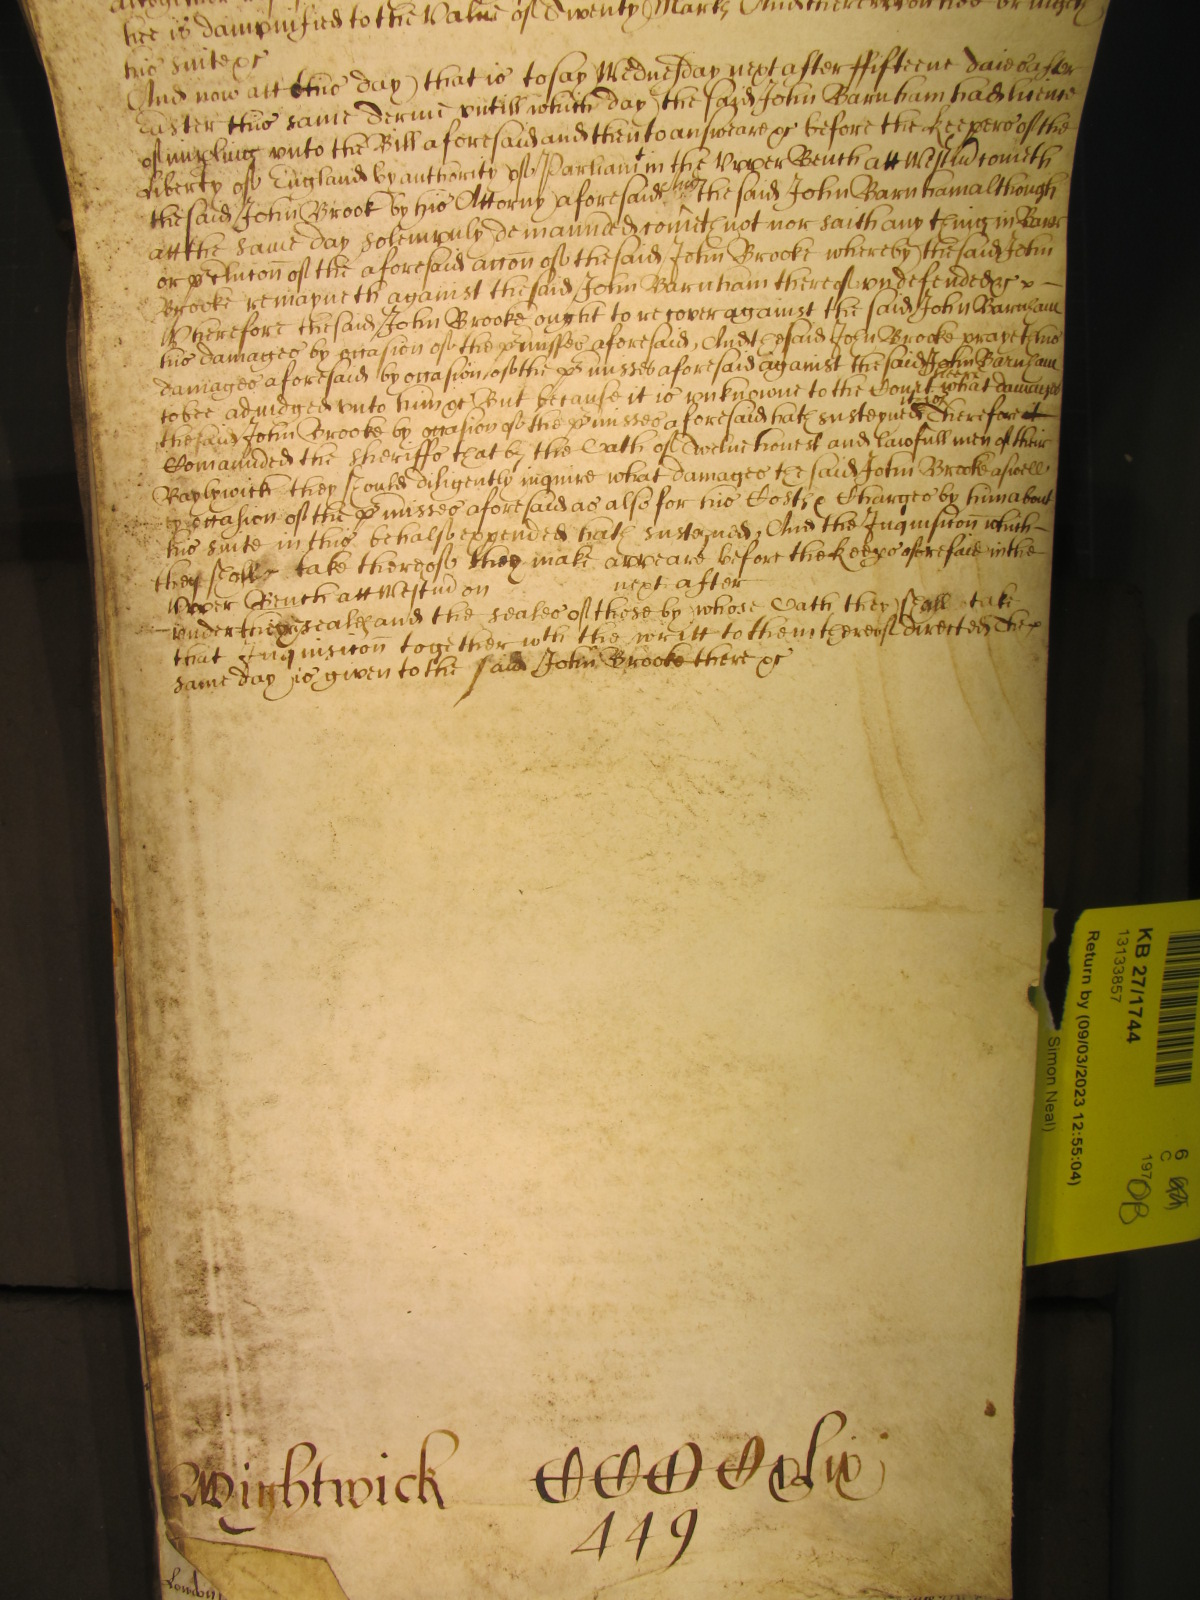 hee is dampnified to the Value of Twenty Mark
his suite &c
And now att this day that is to say Wednesday next after ffifteene daies after
Easter this same Terme untill which day the said John Barnham had licence
of imparling unto the Bill aforesaid and then to answeare &c before the keepers of the
Liberty of England by authority of Parliamt in the Upper Bench att Westm cometh
the said John Brook by his Attorny aforesaid And the said John Barnham although
att the same day solempnly demaunded cometh not nor saith any thing in Barr
or p'clucon of the aforesaid accon of the said John Brooke whereby the said John
Brooke remayneth against the said John Barnham thereof undefended &c
Wherefore the said John Brooke ought to recover against the said John Barnham
his damages by occasion of the p'misses aforesaid, And the said John Brooke prayeth his
damages aforesaid by occasion of the p'misses aforesaid against the said John Barnham
to bee adiudged unto him &c But because it is unknowne to the Court what damages
the said John Brooke by occasion of the p'misses aforesaid hath susteyned Therefore it
Comaunded the Sheriffs that by the Oath of Twelve honest and lawfull men of their
Baylywick they should diligently inquire what damages the said John Brooke aswell
by occasion of the p'misses aforesaid as also for his Costs & Charges by him about
his suite in this behalf expended hath susteyned, And the Inquisicon which
they shall take thereof they make appeare before the Keeps aforesaid in the
Upper Bench att Westm on next after
under their seales and the seales of those by whose Oath they shall take
that Inquisicon together wth the writt to them thereof directed The
same day is given to the said John Brooke there &c
Wightwick CCCCxlix
449
London
KB 27/1744
13133857
Return by (09/03/2023 12:55:04)
Simon Neal)
6
C
197